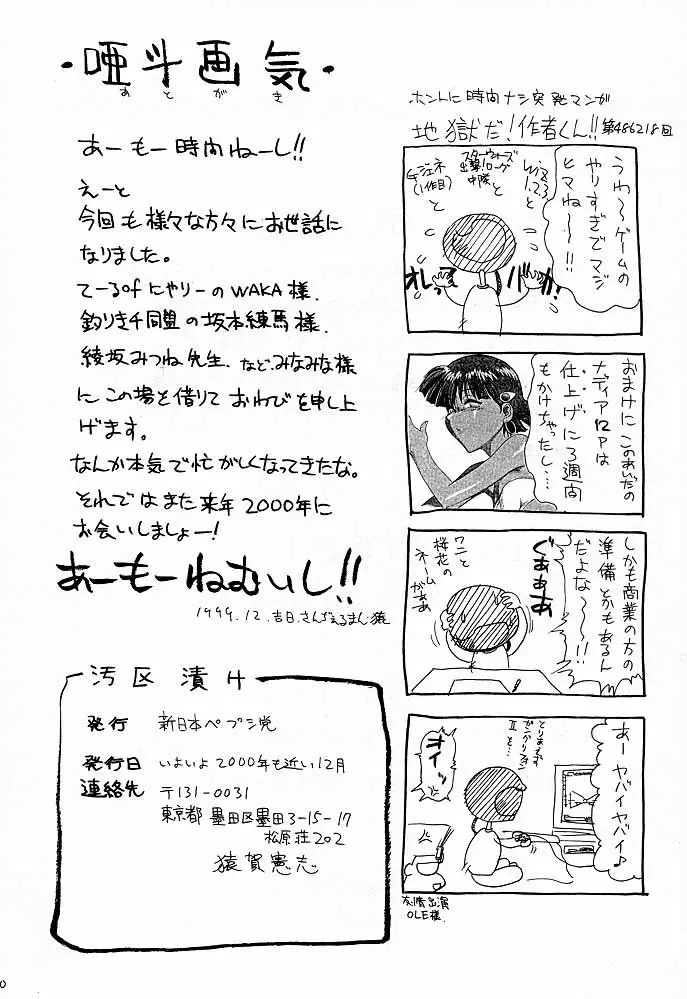 ・唖斗画気・
あとがき
あーもー時間ねーし!!
えーと
今回も様々な方々にお世話に
なりました。
てーるofにゃりーのWAKA様.
釣りキチ同盟の坂本練馬様.
綾坂みつね先生. などみなみな様
にこの場を借りておわびを申し上
げます。
なんか本気で忙がしくなってきたな。
それではまた来年2000年に
お会いしましょー!
あーもーねむいし!!
1999.12.吉日.さんだぁるまん猿
汚区漬け
発行 新日本ペプシ党
発行日 いよいよ2000年も近い12月
連絡先 〒131-0031
東京都 墨田区墨田3-15-17
松原荘202
猿賀憲志
ホントに時間ナシ突発マンガ
地獄だ!作者くん!!第486218回
うわ〜ゲームの
やりすぎでマジ
ヒマね〜〜!!
Wiz
1.2.3
と
スターウォーズ
出撃!ローグ
中隊と
デジェネ
(1作目)
と
オレって
バカ?
おまけにこのあいだの
ナディア12Pは
仕上げに3週間
もかけちゃったし…
しかも商業の方の
準備とかもあるん
だよな〜〜!!
ぐぁぁぁ
ワニと
桜花の
ネームがぁぁ
あーヤバイヤバイ♪
とりあえず
ガンガリフォン
IIを…
オイッ
友情出演
OLE様.
0